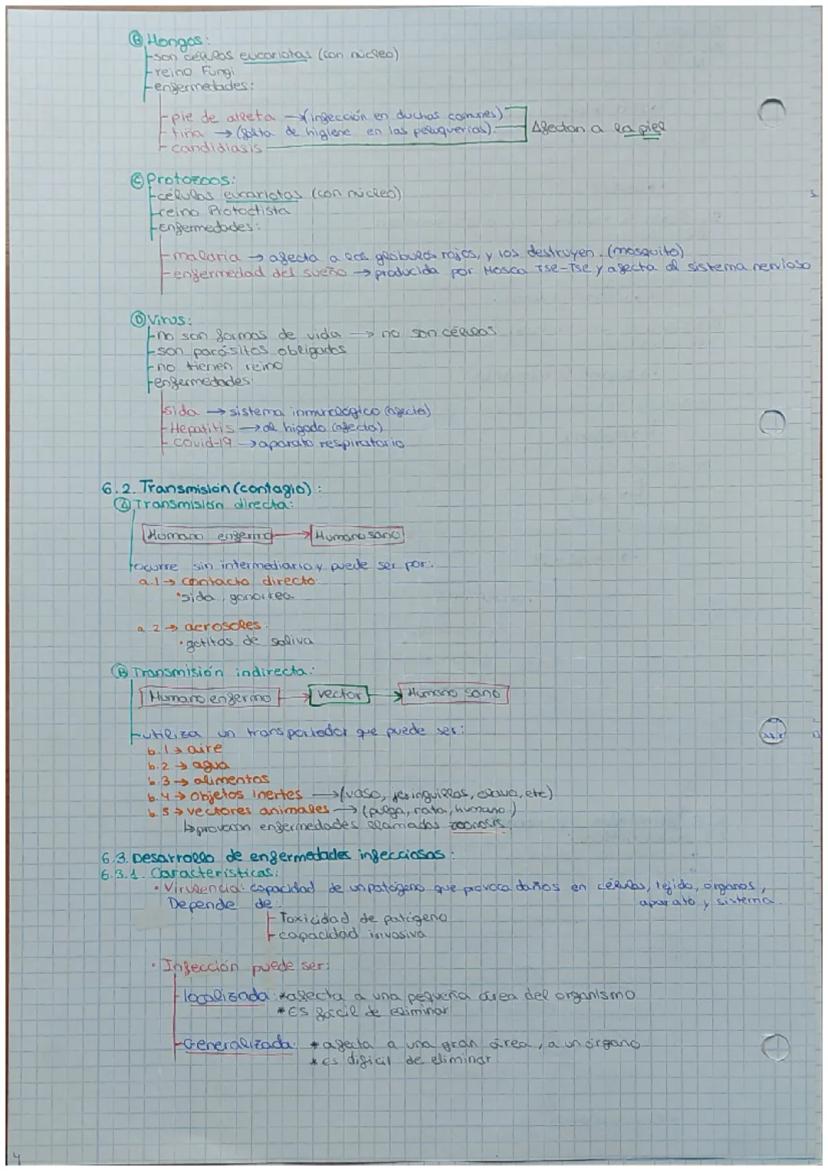 Ⓑ Hongos:
son células eucariotas (con núcleo)
reino Fungi
enfermedades:
pie de atleta → (infección en duchas comunes)
tiña → (falta de higiene en las peluquerías)
candidiasis
Afectan a la piel
Ⓒ Protozoos:
células eucariotas (con núcleo)
reino Protoctista
enfermedades:
malaria → afecta a los glóbulos rojos, y los destruyen. (mosquito)
enfermedad del sueño → producida por Mosca Tse-Tse y afecta al sistema nervioso
Ⓓ Virus:
no son formas de vida → no son células
son parásitos obligados
no tienen reino
enfermedades:
sida → sistema inmunológico (afecta)
Hepatitis → al hígado (afecta)
covid-19 → aparato respiratorio
6.2. Transmisión (contagio):
Ⓐ Transmisión directa:
Humano enfermo → Humano sano
ocurre sin intermediario y puede ser por:
a.1 → contacto directo:
• sida, gonorrea
a.2 → aerosoles:
• gotitas de saliva
Ⓑ Transmisión indirecta:
Humano enfermo → vector → Humano sano
utiliza un transportador que puede ser:
b.1 → aire
b.2 → agua
b.3 → alimentos
b.4 → objetos inertes → (vaso, jeringuillas, clavo, etc)
b.5 → vectores animales → (pulga, rata, humano)
↳ provocan enfermedades llamadas zoonosis
6.3. Desarrollo de enfermedades infecciosas:
6.3.1. Características:
• Virulencia: capacidad de un patógeno que provoca daños en células, tejido, órganos,
aparato y sistema.
Depende de:
Toxicidad de patógeno
capacidad invasiva
• Infección puede ser:
localizada: * afecta a una pequeña área del organismo
* Es fácil de eliminar
Generalizada: * afecta a una gran área, a un órgano
* es difícil de eliminar
4